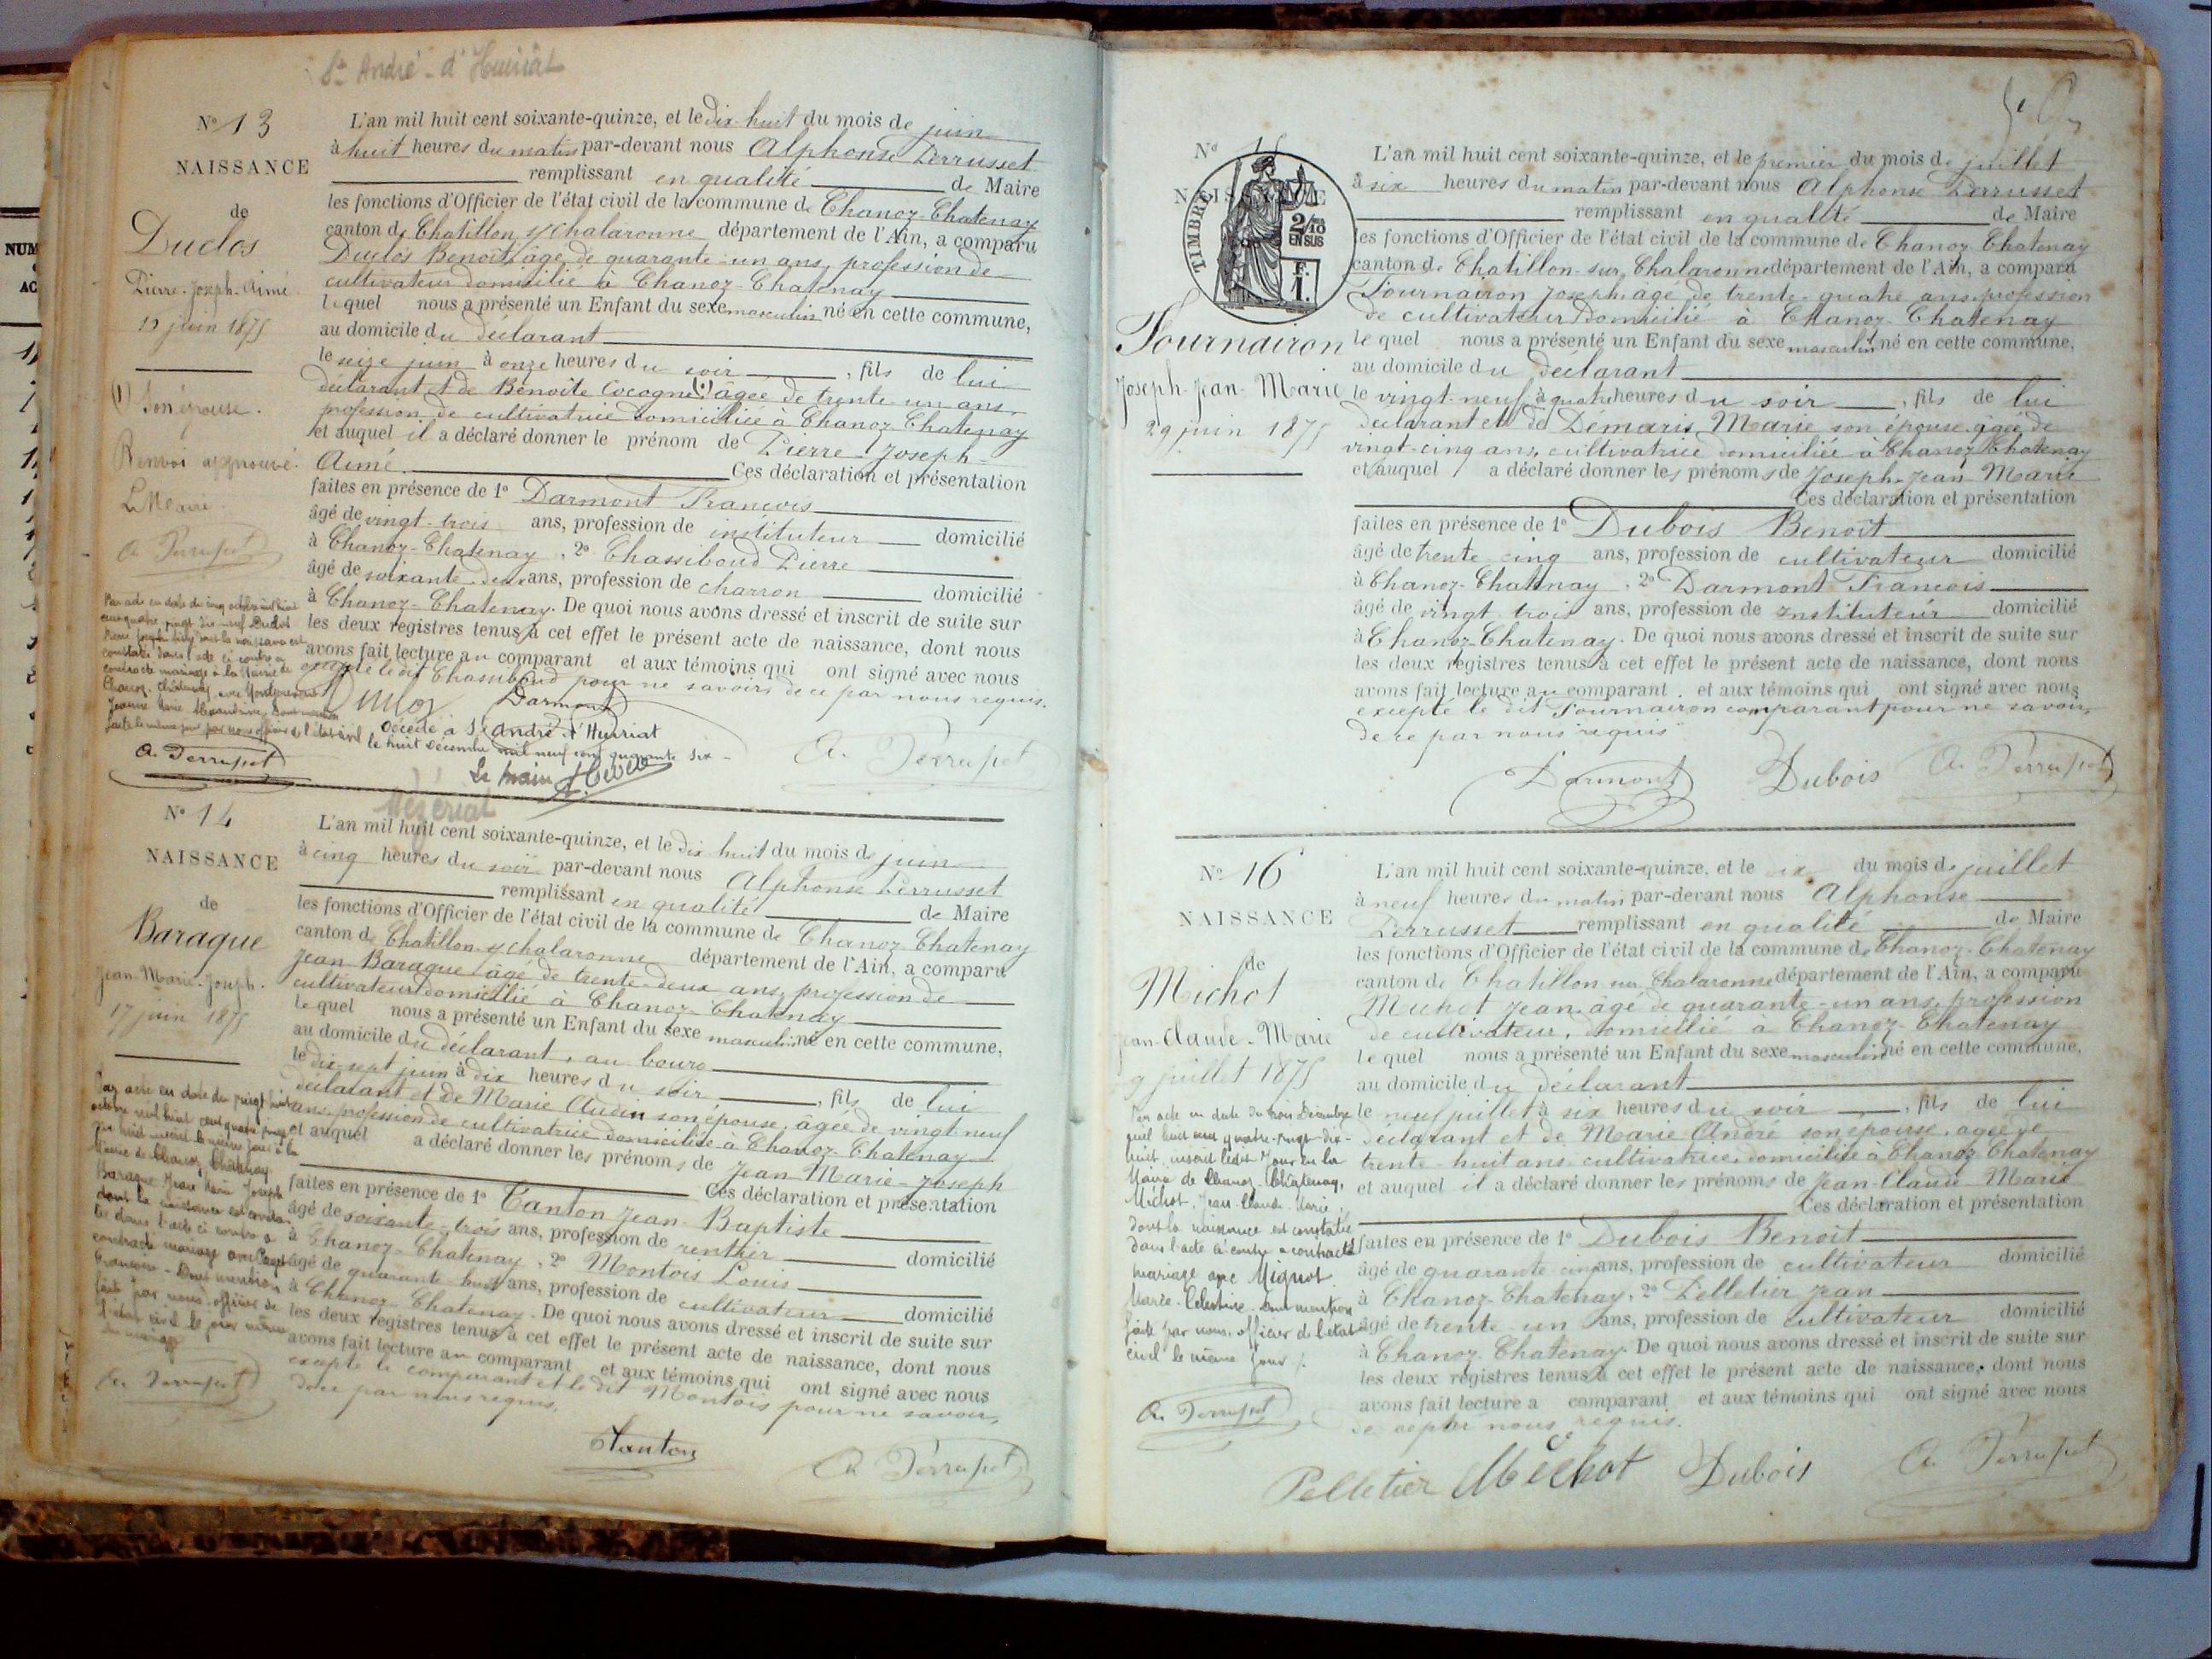 St André-d'Huiriat
N° 13
NAISSANCE
de
Duclos
Pierre-Joseph-Aimé
juin 1875
(1) Son épouse.
Renvoi approuvé.
Le Maire
A. Perrusset
L'an mil huit cent soixante-quinze, et le dix-huit du mois de juin
à huit heures du matin par-devant nous Alphonse Perrusset
remplissant en qualité de Maire
les fonctions d'Officier de l'état civil de la commune de Chanoz-Chatenay
canton de Chatillon s/Chalaronne département de l'Ain, a comparu
Duclos Benoit, âgé de quarante-un ans, profession de
cultivateur domicilié à Chanoz-Chatenay
lequel nous a présenté un Enfant du sexe masculin né en cette commune,
au domicile du déclarant
le seize juin à onze heures du soir, fils de lui
déclarant et de Benoite Cocogne (1) âgée de trente-un ans,
profession de cultivatrice domiciliée à Chanoz-Chatenay
et auquel il a déclaré donner le prénom de Pierre Joseph-
Aimé. Ces déclaration et présentation
faites en présence de 1° Darmont François
âgé de vingt-trois ans, profession de instituteur domicilié
à Chanoz-Chatenay, 2° Chassiboud Pierre
âgé de soixante-deux ans, profession de charron domicilié
à Chanoz-Chatenay. De quoi nous avons dressé et inscrit de suite sur
les deux registres tenus à cet effet le présent acte de naissance, dont nous
avons fait lecture au comparant et aux témoins qui ont signé avec nous
excepté le dit Chassiboud pour ne savoir de ce par nous requis.
Duclos Darmont
A. Perrusset
Par acte en date du cinq octobre mil huit
cent quatre vingt dix neuf Duclos
Pierre Joseph Aimé dont la naissance est
constatée dans l'acte ci contre a
contracté mariage à la Mairie de
Chanoz-Chatenay avec
Jeanne Marie Alexandrine. Dont mention
faite le même jour par nous officier de l'état civil
A. Perrusset
Décédé à St André d'Huiriat
le huit décembre mil neuf cent quarante six
Le Maire
Mézériat
N° 14
NAISSANCE
de
Baraque
Jean-Marie-Joseph.
17 juin 1875
L'an mil huit cent soixante-quinze, et le dix huit du mois de juin
à cinq heures du soir par-devant nous Alphonse Perrusset
remplissant en qualité de Maire
les fonctions d'Officier de l'état civil de la commune de Chanoz-Chatenay
canton de Chatillon s/Chalaronne département de l'Ain, a comparu
Jean Baraque âgé de trente-deux ans, profession de
cultivateur domicilié à Chanoz-Chatenay
lequel nous a présenté un Enfant du sexe masculin né en cette commune,
au domicile du déclarant, au bourg
le dix-sept juin à dix heures du soir, fils de lui
déclarant et de Marie Audin son épouse, âgée de vingt-neuf
ans, profession de cultivatrice domiciliée à Chanoz-Chatenay
et auquel a déclaré donner les prénoms de Jean-Marie-Joseph
Ces déclaration et présentation
faites en présence de 1° Tanton Jean Baptiste
âgé de soixante-trois ans, profession de rentier domicilié
à Chanoz-Chatenay, 2° Montois Louis
âgé de quarante-huit ans, profession de cultivateur domicilié
à Chanoz-Chatenay. De quoi nous avons dressé et inscrit de suite sur
les deux registres tenus à cet effet le présent acte de naissance, dont nous
avons fait lecture au comparant et aux témoins qui ont signé avec nous
excepté le comparant et le dit Montois pour ne savoir,
de ce par nous requis.
Tanton A. Perrusset
Par acte en date du vingt huit
octobre mil huit cent quatre vingt
dix huit inscrit le même jour à la
Mairie de Chanoz Chatenay
Baraque Jean Marie Joseph
dont la naissance est consta-
tée dans l'acte ci contre a
contracté mariage avec
Françoise. Dont mention
faite par nous officier de
l'état civil le jour même
du mariage
A. Perrusset
N°
NAISSANCE
TIMBRE
2/10
EN SUS
F.
1.
Tournairon
Joseph-Jean-Marie
29 juin 1875
L'an mil huit cent soixante-quinze, et le premier du mois de juillet
à six heures du matin par-devant nous Alphonse Perrusset
remplissant en qualité de Maire
les fonctions d'Officier de l'état civil de la commune de Chanoz-Chatenay
canton de Chatillon-sur-Chalaronne département de l'Ain, a comparu
Tournairon Joseph âgé de trente-quatre ans profession
de cultivateur domicilié à Chanoz-Chatenay
lequel nous a présenté un Enfant du sexe masculin né en cette commune,
au domicile du déclarant
le vingt-neuf à quatre heures du soir, fils de lui
déclarant et de Démaris Marie son épouse âgée de
vingt-cinq ans, cultivatrice domiciliée à Chanoz Chatenay
et auquel a déclaré donner les prénoms de Joseph Jean Marie
Ces déclaration et présentation
faites en présence de 1° Dubois Benoit
âgé de trente-cinq ans, profession de cultivateur domicilié
à Chanoz-Chatenay, 2° Darmont François
âgé de vingt trois ans, profession de instituteur domicilié
à Chanoz-Chatenay. De quoi nous avons dressé et inscrit de suite sur
les deux registres tenus à cet effet le présent acte de naissance, dont nous
avons fait lecture au comparant et aux témoins qui ont signé avec nous
excepté le dit Tournairon comparant pour ne savoir,
de ce par nous requis
Darmont Dubois A. Perrusset
N° 16
NAISSANCE
de
Michot
Jean-Claude-Marie
9 juillet 1875
L'an mil huit cent soixante-quinze, et le dix du mois de juillet
à neuf heures du matin par-devant nous Alphonse
Perrusset remplissant en qualité de Maire
les fonctions d'Officier de l'état civil de la commune de Chanoz-Chatenay
canton de Chatillon sur Chalaronne département de l'Ain, a comparu
Michot Jean âgé de quarante-un ans, profession
de cultivateur, domicilié à Chanoz-Chatenay
lequel nous a présenté un Enfant du sexe masculin né en cette commune,
au domicile du déclarant
le neuf juillet à six heures du soir, fils de lui
déclarant et de Marie André son épouse, âgée de
trente-huit ans cultivatrice, domiciliée à Chanoz Chatenay
et auquel il a déclaré donner les prénoms de Jean-Claude Marie
Ces déclaration et présentation
faites en présence de 1° Dubois Benoit
âgé de quarante-cinq ans, profession de cultivateur domicilié
à Chanoz-Chatenay, 2° Pelletier Jean
âgé de trente-un ans, profession de cultivateur domicilié
à Chanoz-Chatenay. De quoi nous avons dressé et inscrit de suite sur
les deux registres tenus à cet effet le présent acte de naissance, dont nous
avons fait lecture a comparant et aux témoins qui ont signé avec nous
de ce par nous requis.
Pelletier Michot Dubois A. Perrusset
Par acte en date du trois Décembre
mil huit cent quatre-vingt-dix-
huit, inscrit le dit jour en la
Mairie de Chanoz-Chatenay,
Michot Jean Claude Marie,
dont la naissance est constatée
dans l'acte ci-contre a contracté
mariage avec Mignot
Marie-Célestine. Dont mention
faite par nous, officier de l'état
civil le même jour
A. Perrusset